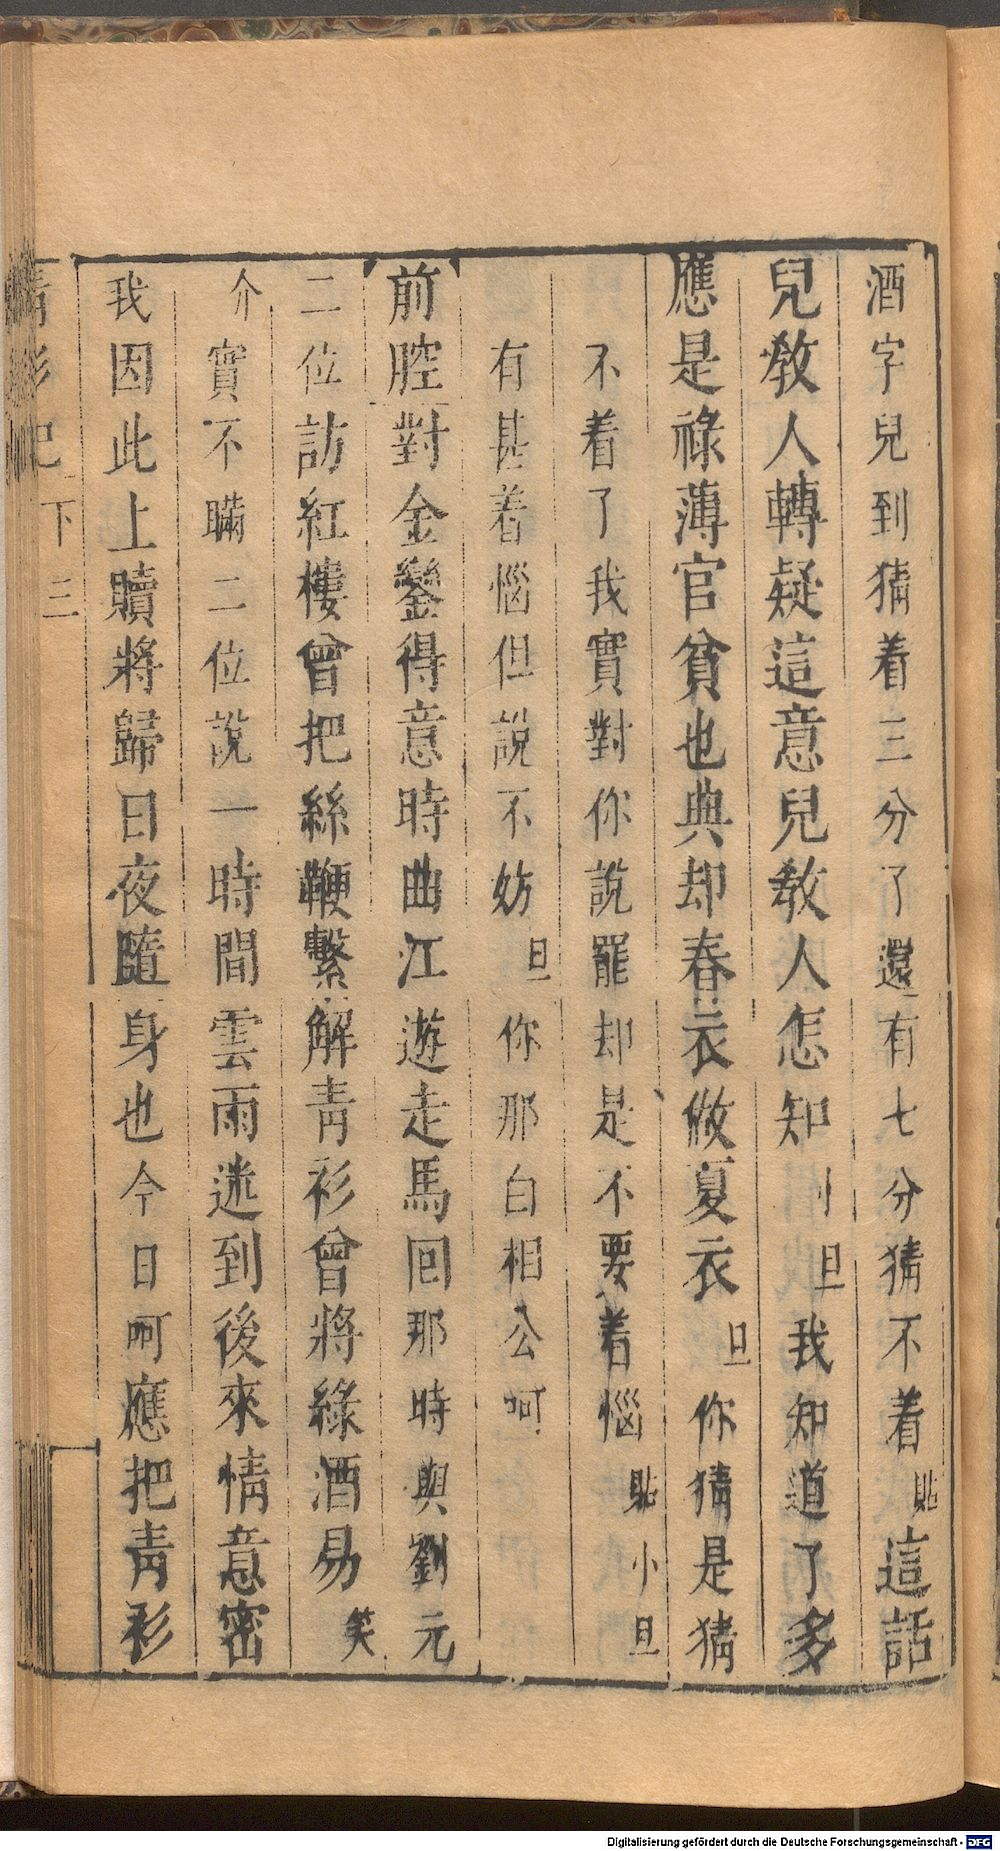 酒字兒到猜着三分了還有七分猜不着貼這話
兒教人轉疑這意兒教人怎知小旦我知道了多
應是祿薄官貧也典却春衣做夏衣旦你猜是猜
不着了我實對你說罷却是不要着惱貼小旦
有甚着惱但說不妨旦你那白相公呵
前腔對金鑾得意時曲江遊走馬回那時與劉元
二位訪紅樓曾把絲鞭繫解青衫曾將綠酒易笑
介實不瞞二位說一時間雲雨迷到後來情意密
我因此上贖將歸日夜隨身也今日呵應把青衫
青衫記下 三
Digitalisierung gefördert durch die Deutsche Forschungsgemeinschaft - DFG